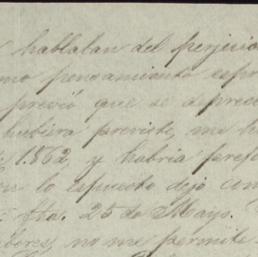 hablaban del perjuicio
mo pensamiento espre
previó que se deprec
hubiera previsto, me h
1862, y habria
en lo espuesto dejo con
fha. 25 de Mayo.
bores, no me permite